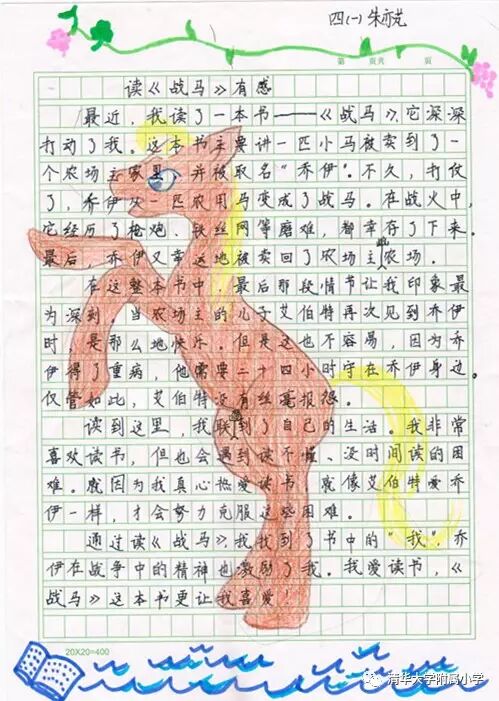 四(一) 朱亦芃
第 页共 页
读《战马》有感
最近，我读了一本书——《战马》，它深深
打动了我。这本书主要讲一匹小马被卖到了一
个农场主家里，并被取名“乔伊”。不久，打仗
了，乔伊从一匹农用马变成了战马。在战火中，
它经历了枪炮、铁丝网等磨难，都幸存了下来。
最后，乔伊又幸运地被卖回了农场主农场。
在这整本书中，最后那段情节让我印象最
为深刻，当农场主的儿子艾伯特再次见到乔伊
时，是那么地快乐。但是这也不容易，因为乔
伊得了重病，他需要二十四小时守在乔伊身边。
仅管如此，艾伯特没有丝毫报怨。
读到这里，我联到了自己的生活。我非常
喜欢读书，但也会遇到读不懂、没时间读的困
难。就因为我真心热爱读书，就像艾伯特爱乔
伊一样，才会努力克服这些困难。
通过读《战马》，我找到了书中的“我”，乔
伊在战争中的精神也激励了我。我爱读书，《
战马》这本书更让我喜爱！
20X20=400
清华大学附属小学